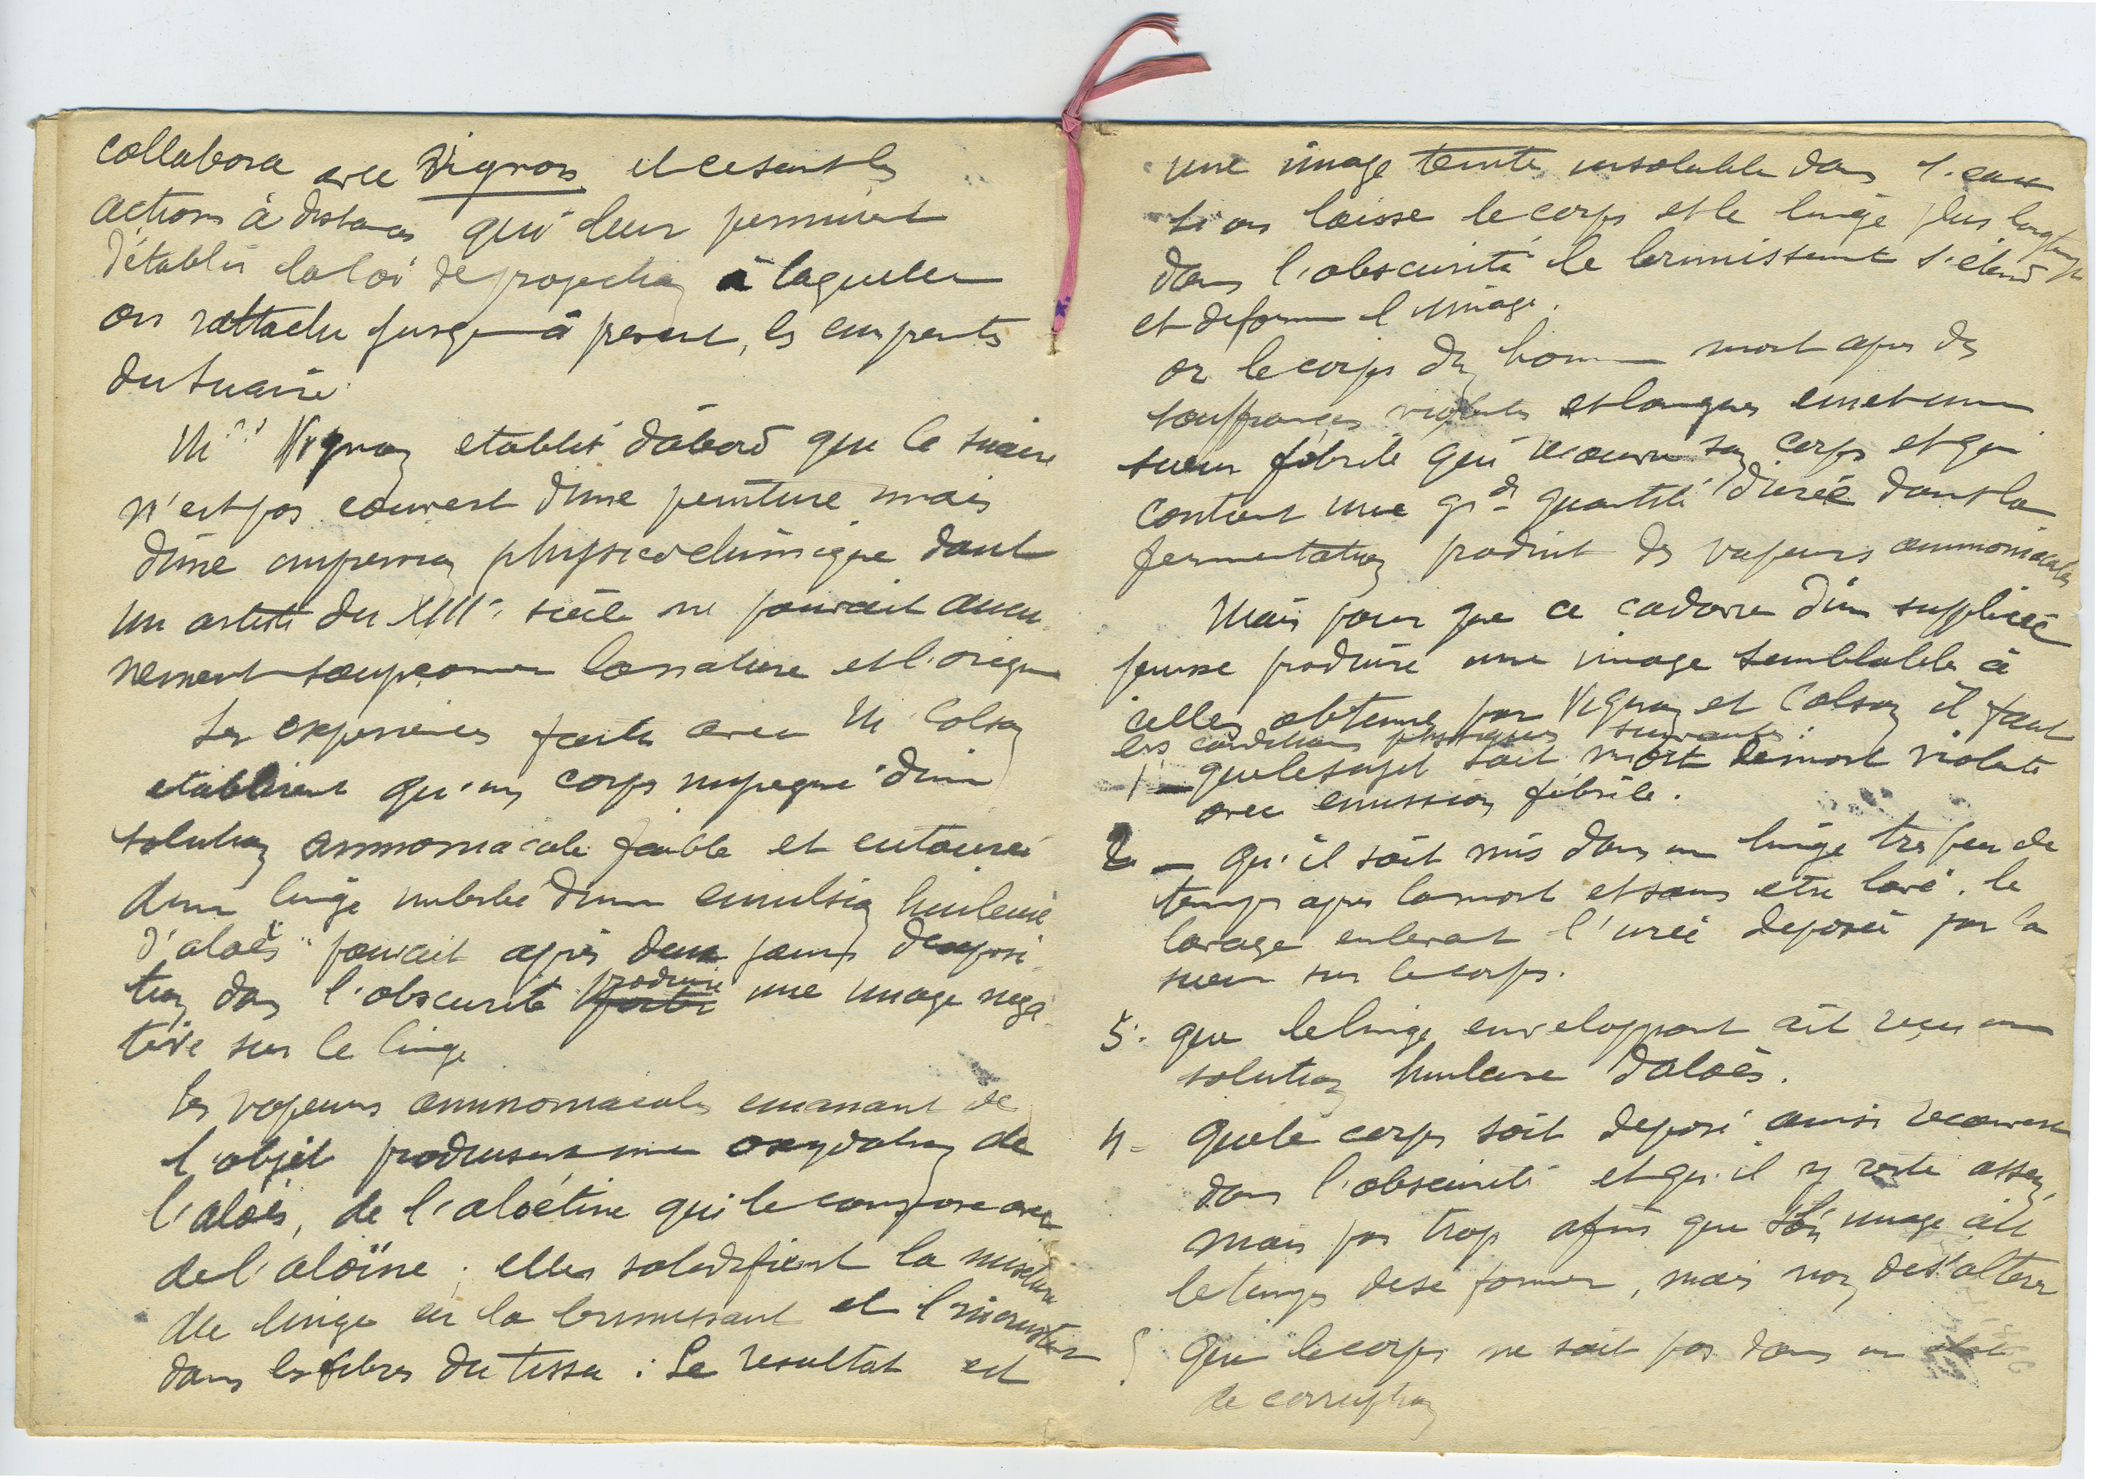 collabora avec Vignon et ce sont les
actions à distances qui leur permirent
d'établir la loi de projection à laquelle
on rattache jusque à present, les empreints
du Suaire
Mr Vignon etablit d'abord que le suaire
n'est pas couvert d'une peinture mais
d'une impression physico chimique dont
un artiste du XIIIe siècle ne pouvait aucu
nement soupçonner la nature et l'origine
Les experiences faites avec M Colson
etablirent qu'un corps impregné d'une
solution ammoniacale faible et entouré
d'un linge imbibé d'une emulsion huileuse
d'aloès pouvait après deux jours d'exposi
tion dans l'obscurité produire une image nega
tive sur le linge
Les vapeurs ammoniacales emanant de
l'objet produisent une oxydation de
l'aloès, de l'aloétine qui le compose avec
de l'aloïne ; elles solidifient la mixture
du linge en la brunissant et l'incrustent
dans les fibres du tissu : Le resultat est
une image teinte insoluble dans l'eau
si on laisse le corps et le linge plus longtemps
dans l'obscurité le brunissement s'étend
et deforme l'image.
or le corps d'un homme mort apres des
souffrances violentes et longues emet une
sueur fébrile qui recouvre son corps et qui
contient une grde quantité d'urée dont la
fermentation produit des vapeurs ammoniacales
Mais pour que ce cadavre d'un supplicié
puisse produire une image semblable à
celles obtenues par Vignon et Colson il faut
les conditions physiques suivantes :
1° — que le sujet soit mort de mort violente
avec emission fébrile.
2 — qu'il soit mis dans un linge tres peu de
temps apres la mort et sans etre lavé. le
lavage enlevant l'urée deposée par la
sueur sur le corps.
3. que le linge enveloppant ait reçu une
solution huileuse d'aloès.
4 - Que le corps soit deposé ainsi recouvert
dans l'obscurité et qu'il y reste assez,
mais pas trop afin que son image ait
le temps de se former, mais non de s'alterer
5 Que le corps ne soit pas dans un état
de corruption